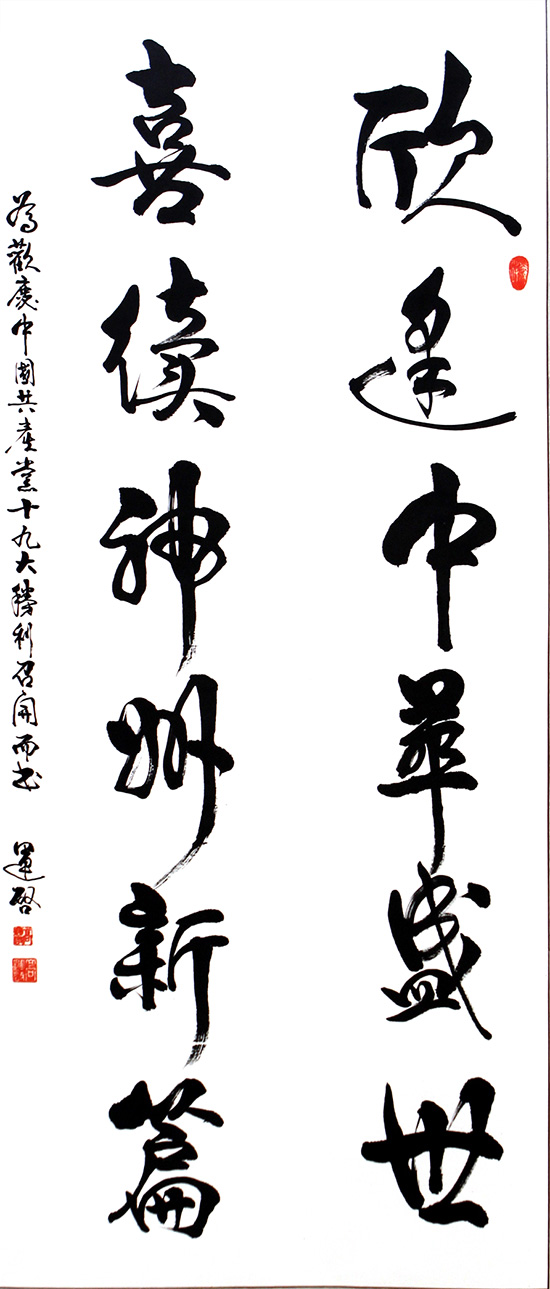 欣逢中華盛世
喜續神州新篇
為歡慶中國共產黨十九大勝利召開而書 運啓